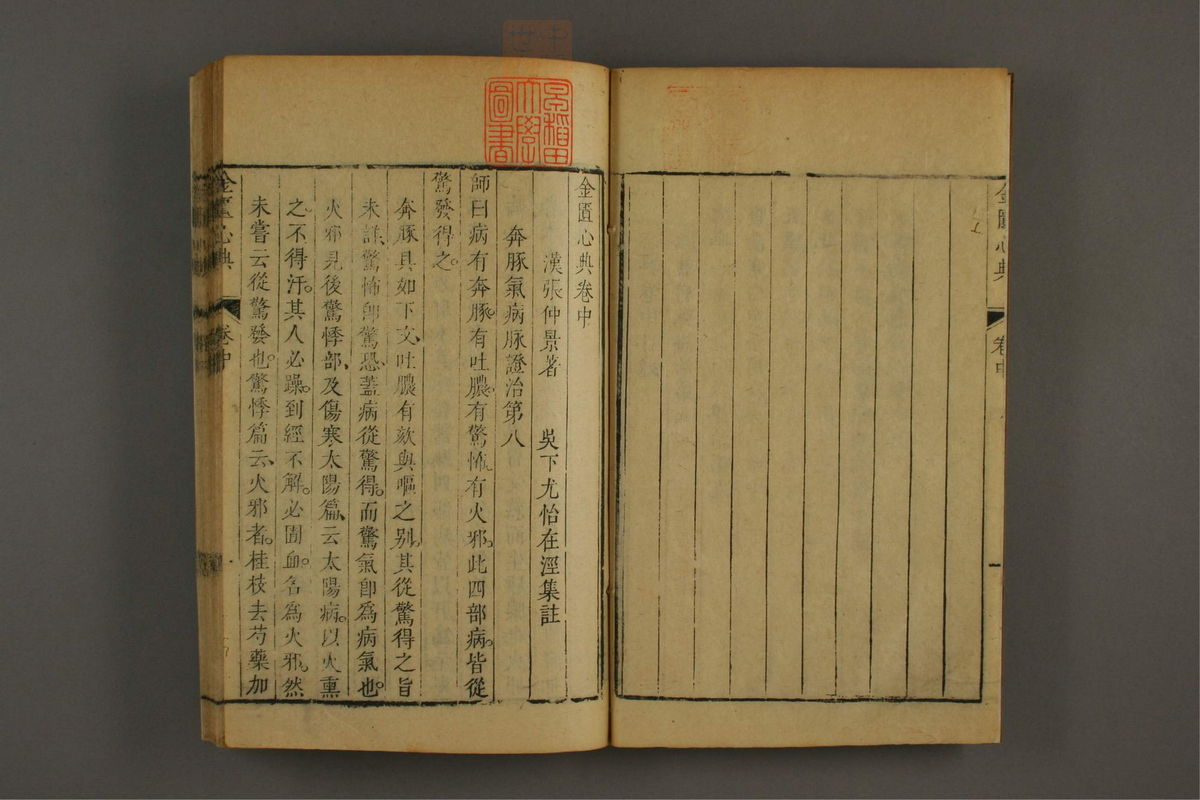 金匱心典
卷中
早稻田
大學
圖書
金匱心典卷中
漢張仲景著 吳下尤怡在涇集註
奔豚氣病脉證治第八
師曰病有奔豚。有吐膿。有驚怖。有火邪。此四部病。皆從
驚發得之。
奔豚具如下文、吐膿有欬與嘔之别。其從驚得之旨
未詳、驚怖卽驚恐、蓋病從驚得。而驚氣卽爲病氣也。
火邪見後驚悸部、及傷寒太陽篇、云太陽病。以火熏
之。不得汗。其人必躁。到經不解。必圊血。名爲火邪。然
未嘗云從驚發也。驚悸篇云、火邪者。桂枝去芍藥加
金匱心典
卷中